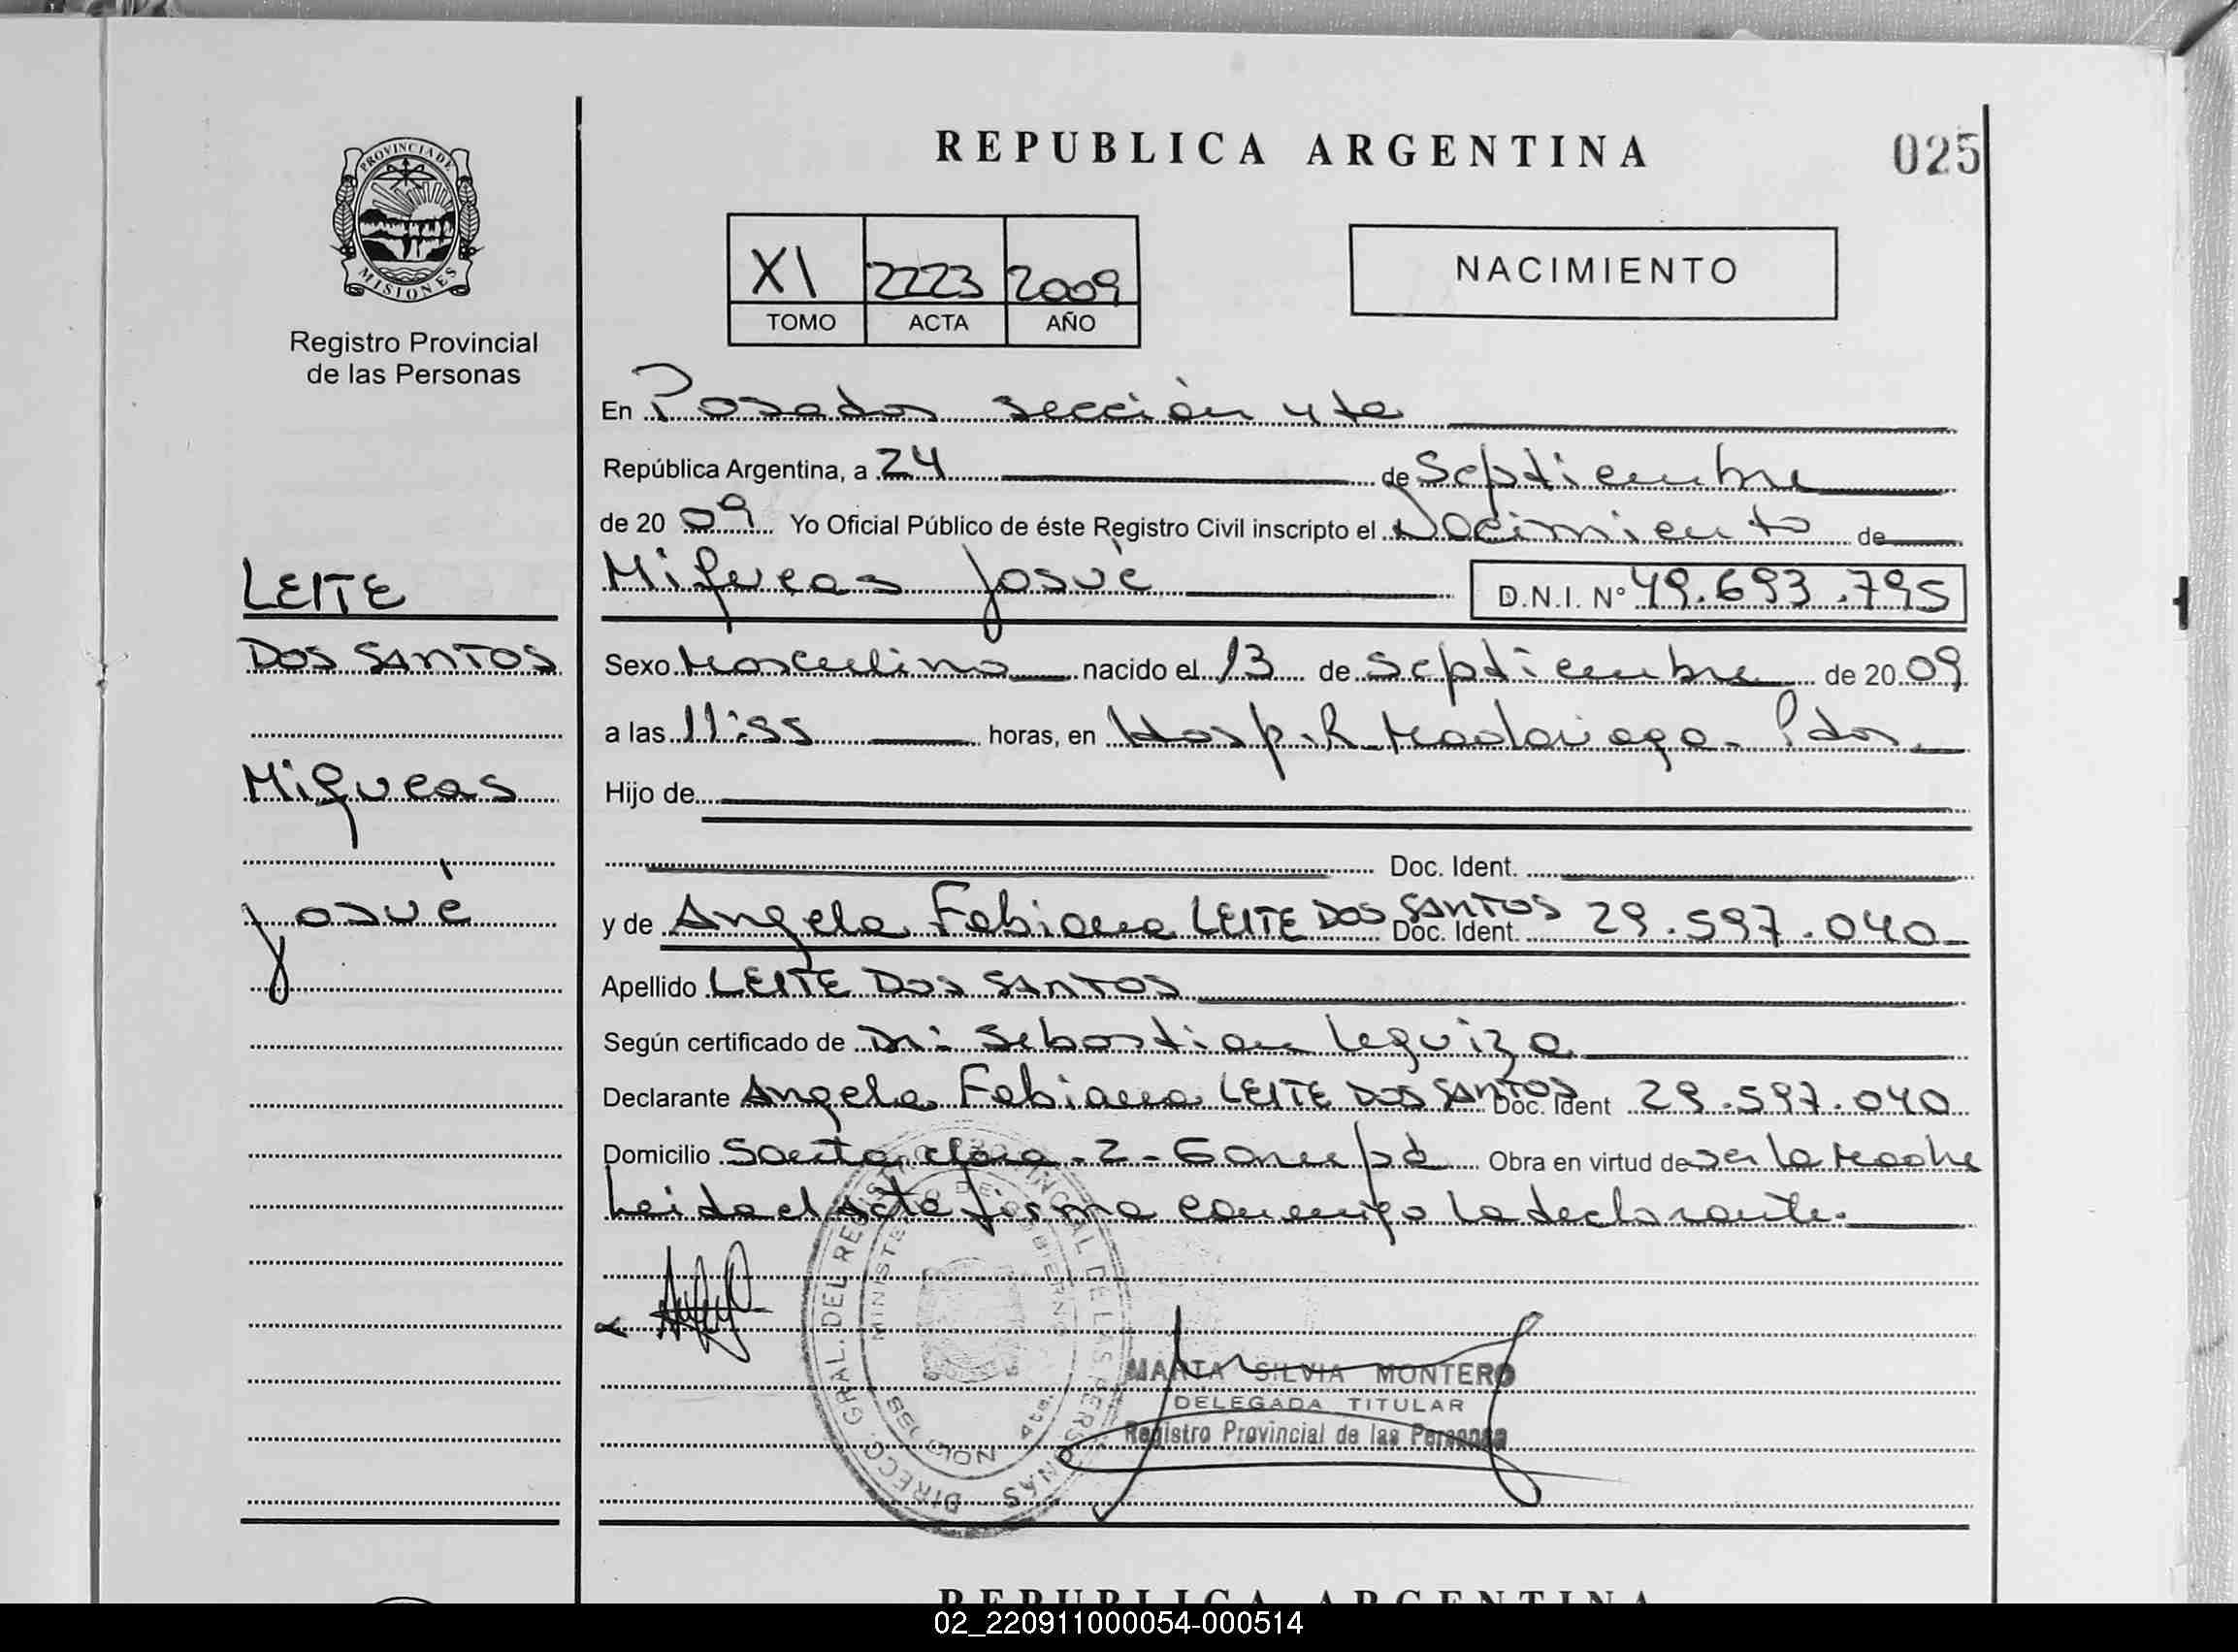 REPUBLICA ARGENTINA
025
PROVINCIA DE
MISIONES
Registro Provincial
de las Personas
XI 2223 2009
TOMO ACTA AÑO
NACIMIENTO
En Posadas sección 4ta
República Argentina, a 24 de Septiembre
de 2009 Yo Oficial Público de éste Registro Civil inscripto el Nacimiento de
Miqueas Josué D.N.I. Nº 49.693.795
LEITE
DOS SANTOS
Miqueas
Josué
Sexo Masculino nacido el 13 de Septiembre de 2009
a las 11:55 horas, en Hosp. R. Madariaga - Pdas
Hijo de
Doc. Ident.
y de Angela Fabiana LEITE DOS SANTOS Doc. Ident. 29.597.040
Apellido LEITE DOS SANTOS
Según certificado de Dr: Sebastian Leguiza
Declarante Angela Fabiana LEITE DOS SANTOS Doc. Ident 29.597.040
Domicilio Santa Clara - 2 - Garupá Obra en virtud de ser la Madre
Leida el Acta firma conmigo la declarante.
DIRECC. GRAL. DEL REGISTRO PROVINCIAL DE LAS PERSONAS
MINISTERIO DE GOBIERNO
MARTA SILVIA MONTERO
DELEGADA TITULAR
Registro Provincial de las Personas
REPUBLICA ARGENTINA
02_220911000054-000514